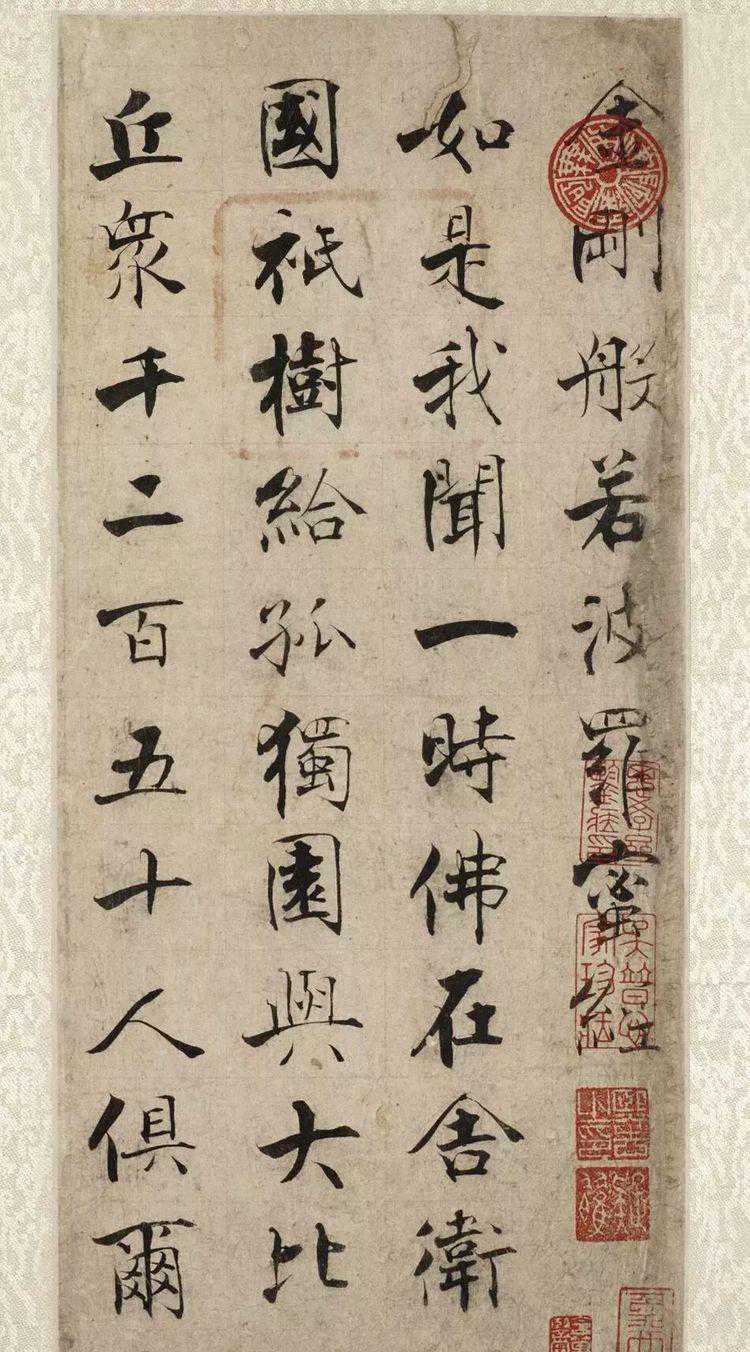 金剛般若波羅蜜經
如是我聞一時佛在舍衛
國祇樹給孤獨園與大比
丘衆千二百五十人俱爾